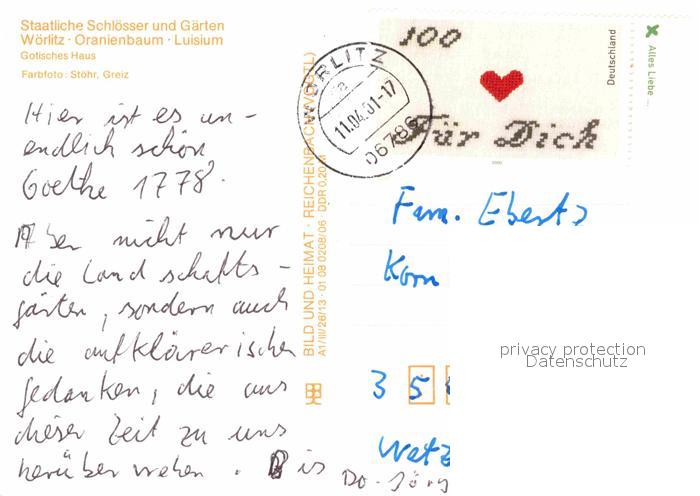 Staatliche Schlösser und Gärten
Wörlitz · Oranienbaum · Luisium
Gotisches Haus
Farbfoto: Stöhr, Greiz
Hier ist es un-
endlich schön,
Goethe 1778.
Aber nicht nur
die Landschafts-
gärten, sondern auch
die aufklärerischen
Gedanken, die aus
dieser Zeit zu uns
herüber wehen. Bis Do. Jörg
BILD UND HEIMAT · REICHENBACH (VOGTL)
A1/III/26/13 · 01 08 0208/06 · DDR 0,20 M
WÖRLITZ
a
11.04.01-17
06786
100
Für Dich
Deutschland
2000
Alles Liebe...
Fam. Ebert
Korn
privacy protection
Datenschutz
3 5
Wetz